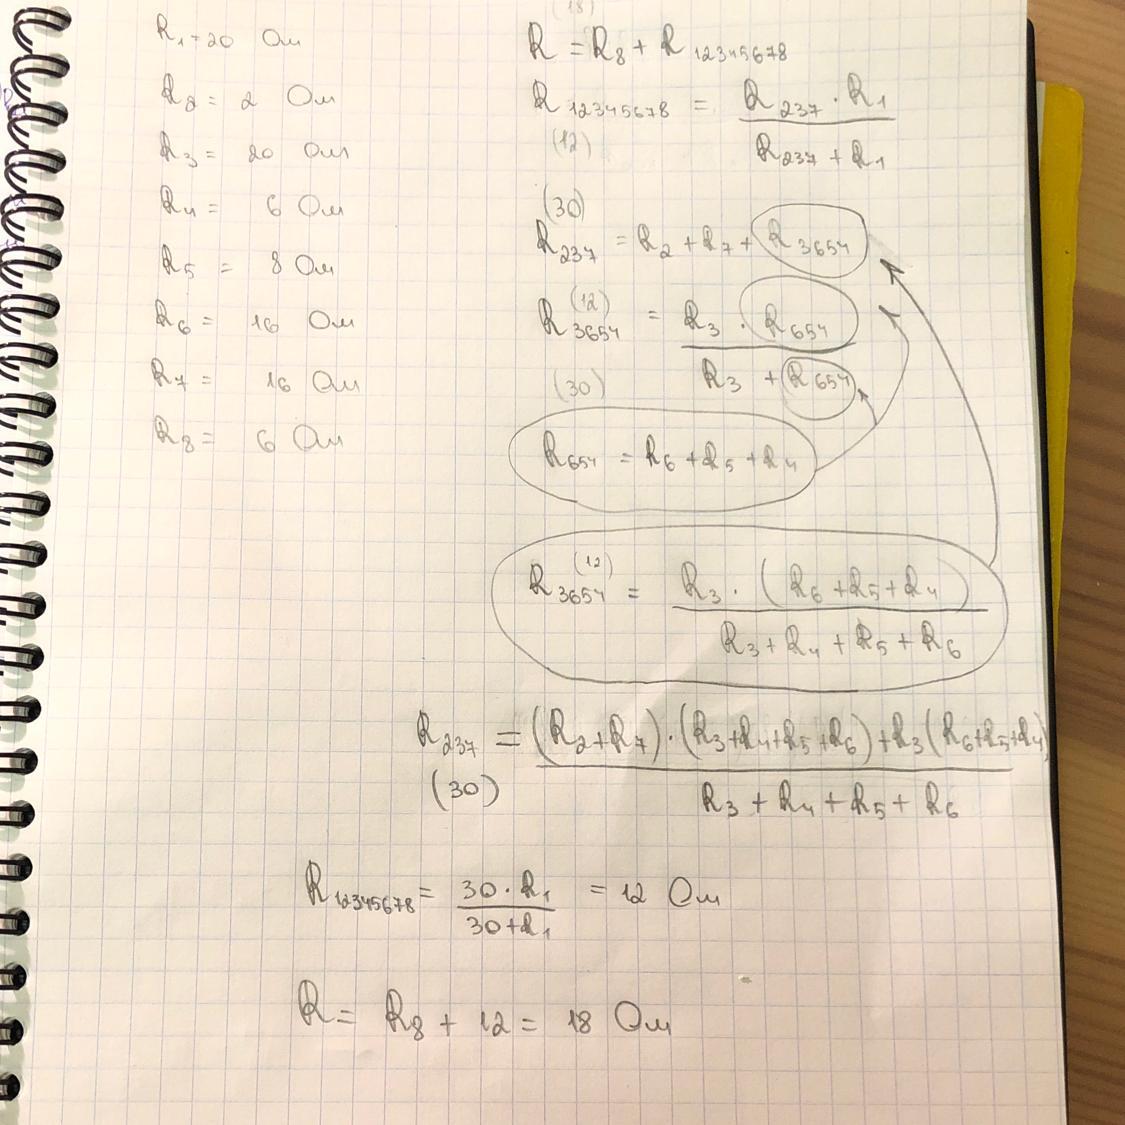 R₁=20 Ом
R₂ = 2 Ом
R₃ = 20 Ом
R₄ = 6 Ом
R₅ = 8 Ом
R₆ = 16 Ом
R₇ = 16 Ом
R₈ = 6 Ом
(18)
R = R₈ + R₁₂₃₄₅₆₇₈
R₁₂₃₄₅₆₇₈ = R₂₃₇ · R₁
R₂₃₇ + R₁
(12)
(30)
R₂₃₇ = R₂ + R₇ + R₃₆₅₄
(12)
R₃₆₅₄ = R₃ · R₆₅₄
R₃ + R₆₅₄
(30)
R₆₅₄ = R₆ + R₅ + R₄
(12)
R₃₆₅₄ = R₃ · (R₆ + R₅ + R₄)
R₃ + R₄ + R₅ + R₆
R₂₃₇ = (R₂+R₇)·(R₃+R₄+R₅+R₆)+R₃(R₆+R₅+R₄)
(30)
R₃ + R₄ + R₅ + R₆
R₁₂₃₄₅₆₇₈ = 30 · R₁ = 12 Ом
30+R₁
R = R₈ + 12 = 18 Ом